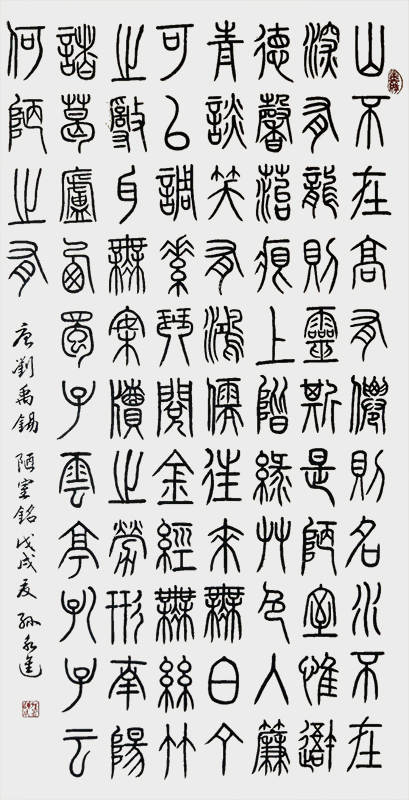 山不在高有僊則名水不在
深有龍則靈斯是陋室惟吾
德馨菭痕上階緑艸色入簾
青談笑有鴻儒往來無白丁
可以調素琴閱金經無絲竹
之亂耳無案牘之勞形南陽
諸葛廬西蜀子雲亭孔子云
何陋之有
唐劉禹錫 陋室銘 戊戌夏 孫永進